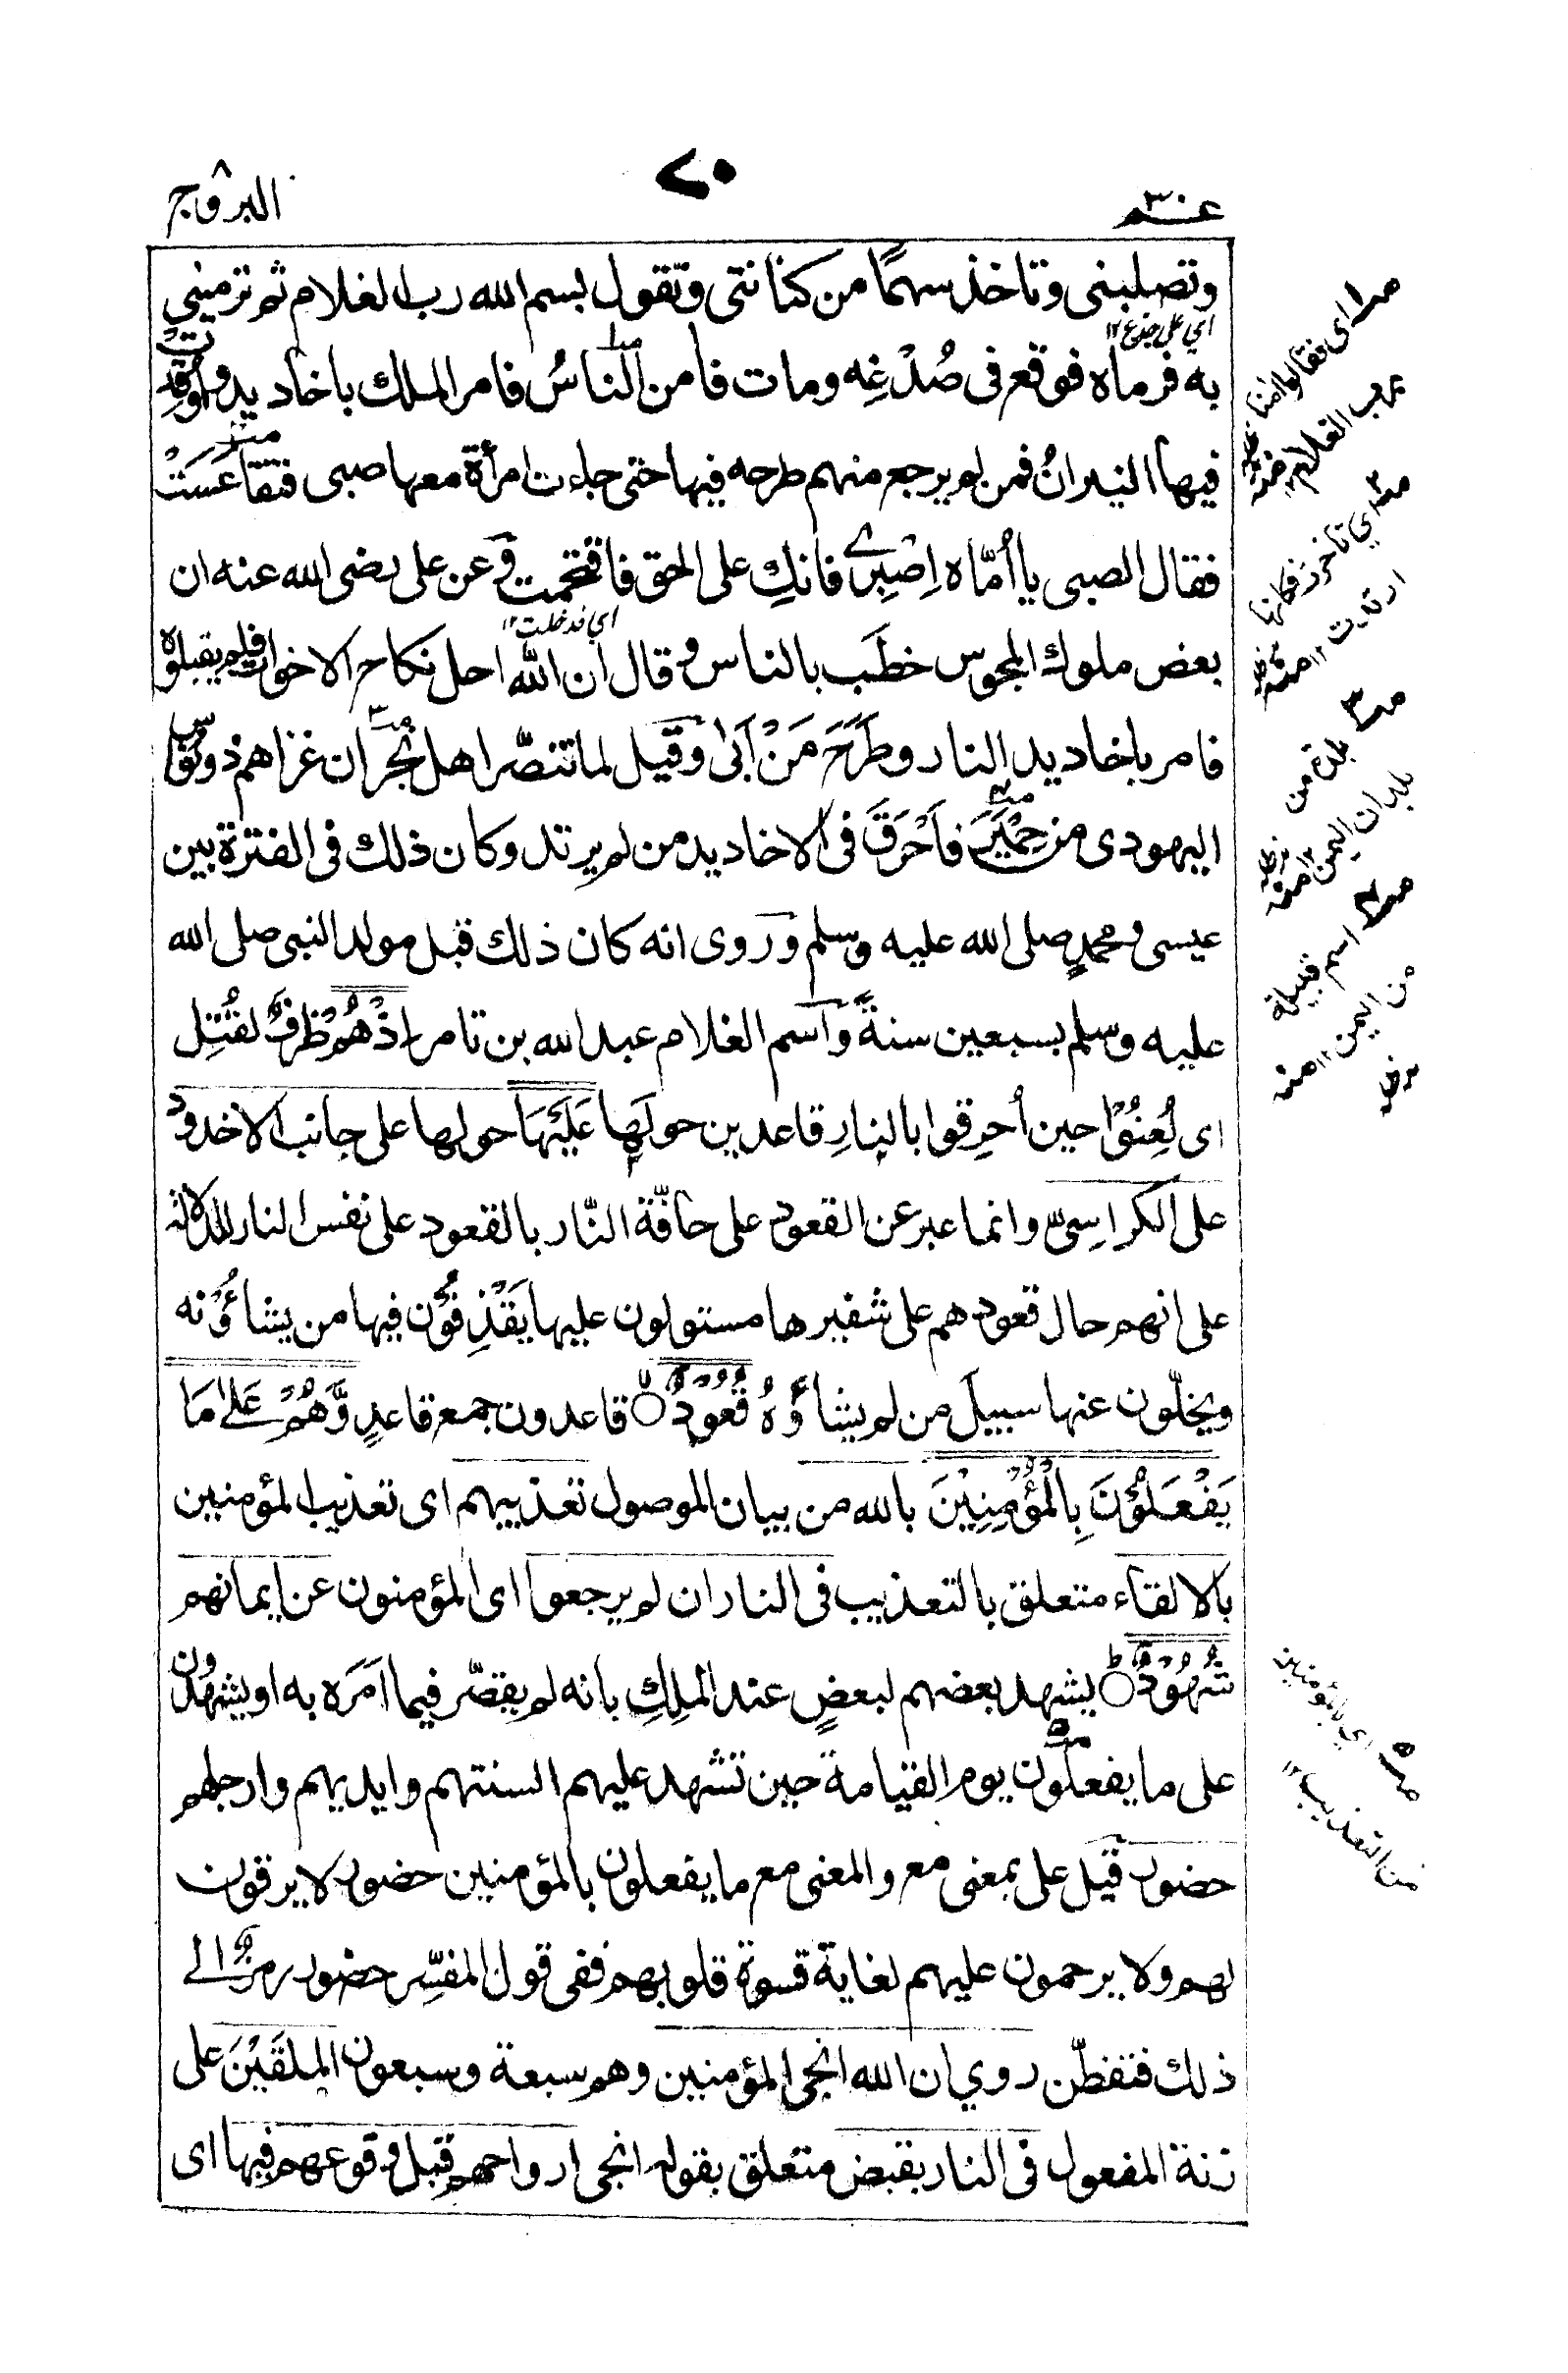 عم٣٠
٧٠
البروج
وتصلبنى وتاخذ سهمًا من كنانتى وتقول بسم الله رب الغلام ثم ترمينى
اي على جذع١٢
به فرماه فوقع فى صُدْغِه ومات فامن الناسُ فامر الملك باخاديد واُوقِدت
فيها النيرانُ فمن لم يرجع منهم طرحه فيها حتى جاءت امرأة معها صبى فتقاعَسَتْ
فقال الصبى يا اُمّاه اِصْبِرِى فانكِ على الحق فاقتحمت وعن على رضى الله عنه ان
اي فدخلت١٢
بعض ملوك المجوس خطَب بالناس وقال ان الله احل نكاح الاخوات فلم يقبلوه
فامر باخاديد النار وطَرَحَ مَنْ اَبٰى وقيل لما تنصّر اهل نجران غزاهم ذونُوَاس
اليهودى من حِمْيَر فاَحْرَقَ فى الاخاديد من لم يرتد وكان ذلك فى الفترة بين
عيسى ومحمدٍ صلى الله عليه وسلم وروى انه كان ذلك قبل مولد النبى صلى الله
عليه وسلم بسبعين سنةً واسم الغلام عبد الله بن تامر اِذْهُمْ ظرفٌ لقُتِل
اى لُعِنُوْا حين اُحرِقوا بالنارِ قاعدين حولَها عَلَيْهَا حولها على جانب الاخدود
على الكراسِىّ وانما عبر عن القعود على حافّة النّار بالقعود على نفس النار للدلالة
على انهم حال قعودهم على شفيرها مستولون عليها يَقْذِفُوْن فيها من يشاؤُنه
ويخلّون عنها سبيلَ من لم يشاؤُهُ قُعُوْدٌ قاعدون جمع قاعدٍ وَّهُمْ عَلٰى مَا
يَفْعَلُوْنَ بِالْمُؤْمِنِيْنَ بالله من بيان الموصول تعذيبهم اى تعذيب المؤمنين
بالالقاء متعلق بالتعذيب فى النار ان لم يرجعوا اى المؤمنون عن ايمانهم
شُهُوْدٌ يشهد بعضهم لبعضٍ عند الملِكِ بانه لم يقصّر فيما اَمَرَه به او يشهدون
على ما يفعلون يوم القيامة حين تشهد عليهم السنتهم وايديهم وارجلهم
حضور قيل على بمعنى مع والمعنى مع ما يفعلون بالمؤمنين حضور لا يرقون
لهم ولا يرحمون عليهم لغاية قسوة قلوبهم ففى قول المفسِّر حضور رمزٌ الى
ذلك فتفطّن روي ان الله انجى المؤمنين وهم سبعة وسبعون الملقَيْنَ على
زنة المفعول فى النار بقبض متعلق بقوله انجى ارواحهم قبل وقوعهم فيها اى
اى فقالوا امنا
برب الغلام
اي تاخرت كانها
ارتدت ١٢منه
٣ بلدة من
بلدان اليمن ١٢منه
اسم قبيلة
من اليمن ١٢منه
٥ اي بالمؤمنين
من التعذيب ١٢